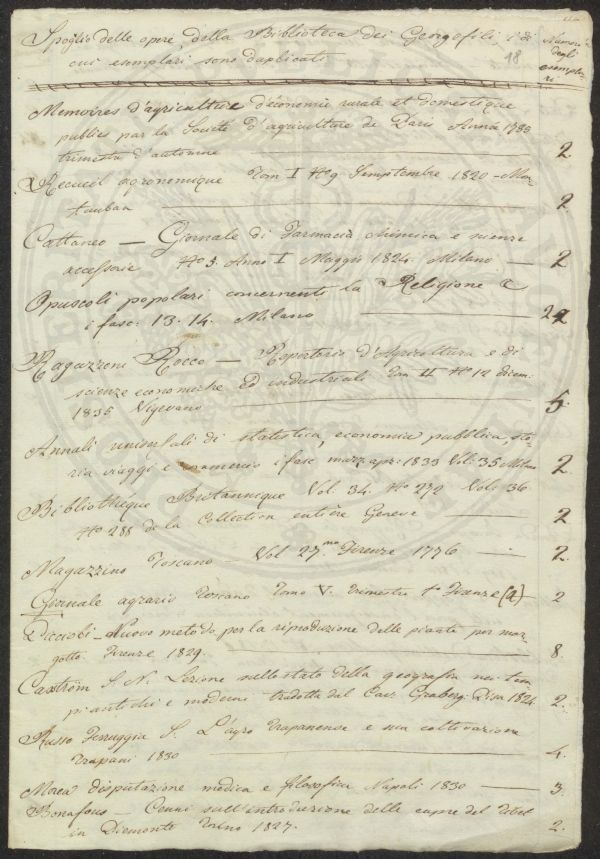 Spoglio delle opere della Biblioteca dei Georgofili, i di
cui esemplari sono duplicati
18
Numero
degli
esempla
ri
Memoires d'agriculture d'économie rurale et domestique
publiés par la Societé d'agriculture de Paris Année 1789
trimestre d'automne 2
Recueil agronomique Tom I No 9 Semptembre 1820 - Mon
tauban 2
Cattaneo — Giornale di Farmacia chimica e scienze
accessorie No 5. Anno I Maggio 1824. Milano — 2
Opuscoli popolari concernenti la Religione
i fasc: 13. 14. Milano 22
Ragazzoni Rocco — Repertorio d'Agricoltura e di
scienze economiche ed industriali Tom II No 12 dicem:
1835 Vigevano 5.
Annali universali di statistica, economia pubblica, sto,
ria viaggi e commercio i fasc marz. apr: 1833 Vol: 35 Milano 2
Bibliothéque Britannique Vol. 34. No 272 Vol: 36
No 288 de la Collection entière Genève 2
Magazzino Toscano — Vol 27.mo Firenze 1776 — 2.
Giornale agrario Toscano Tomo V. trimestre 1o Firenze (a) — 2
Piccioli - Nuovo metodo per la riproduzione delle piante per mar,
gotto. Firenze 1829. 8.
Castróm S. N. Lezione sullo stato della geografia nei tem
pi antichi e moderni tradotta dal Cav. Graberg. Pisa 1824 2.
Russo Ferruggia S. L'agro trapanense e sua coltivazione
Trapani 1830 4.
Morea disputazione medica e filosofica Napoli 1830 — 3.
Bonafous — Cenni sull'introduzione delle capre del Tibet
in Piemonte Torino 1827. 2.